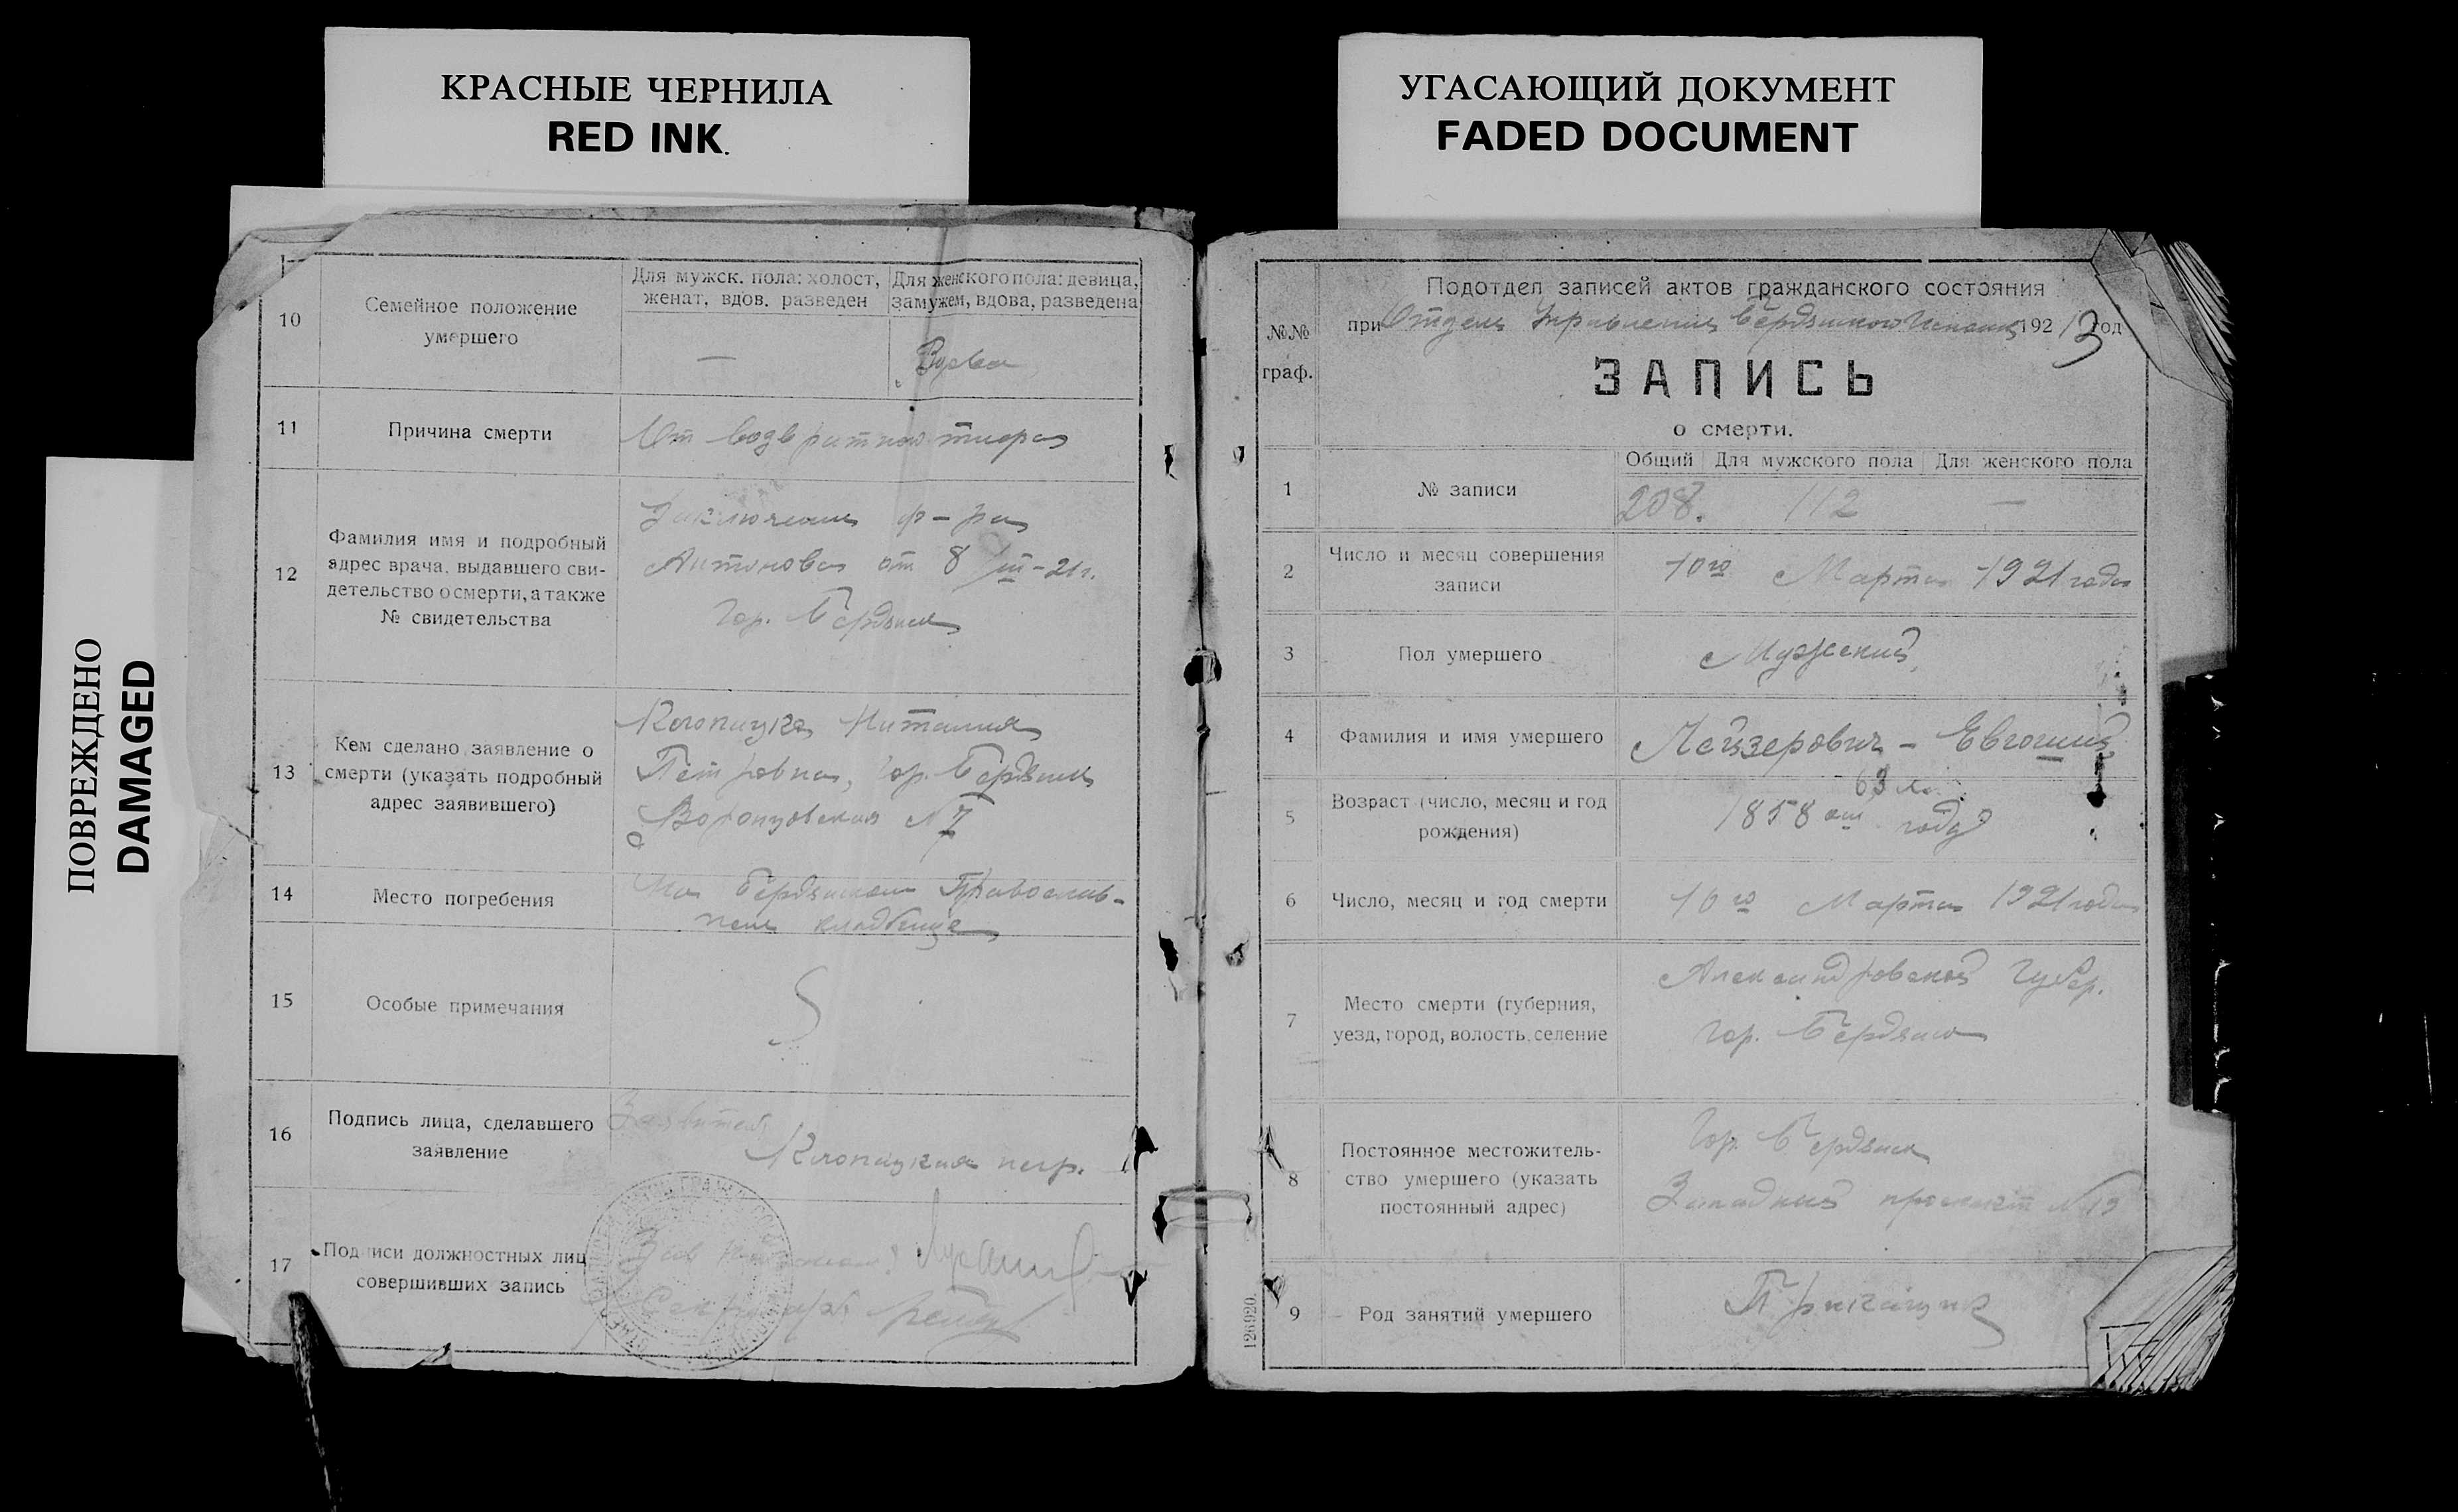 КРАСНЫЕ ЧЕРНИЛА
RED INK.
УГАСАЮЩИЙ ДОКУМЕНТ
FADED DOCUMENT
ПОВРЕЖДЕНО
DAMAGED
10
Семейное положение
умершего
Для мужск. пола: холост,
женат, вдов. разведен
Для женского пола: девица,
замужем, вдова, разведена
—
Вдова
11
Причина смерти
От возвратного тифа
12
Фамилия имя и подробный
адрес врача, выдавшего сви-
детельство о смерти, а также
№ свидетельства
Заключение
Антонова от 8/III-21г.
Гор. Бердянск
13
Кем сделано заявление о
смерти (указать подробный
адрес заявившего)
Наталия
Петровна, гор. Бердянск
Воронцовская №7
14
Место погребения
На Бердянском Православ-
ном кладбище
15
Особые примечания
16
Подпись лица, сделавшего
заявление
17
Подписи должностных лиц
совершивших запись
Секретарь
№№
граф.
Подотдел записей актов гражданского состояния
при Отделе Управления Бердянского 192 год
ЗАПИСЬ
о смерти.
1
№ записи
Общий
Для мужского пола
Для женского пола
208.
112
—
2
Число и месяц совершения
записи
10го Марта 1921 года
3
Пол умершего
Мужской
4
Фамилия и имя умершего
Лейзерович - Евгений
5
Возраст (число, месяц и год
рождения)
63
1858 ом году
6
Число, месяц и год смерти
10го Марта 1921 года
7
Место смерти (губерния,
уезд, город, волость, селение
Александровской Губер.
гор. Бердянск
8
Постоянное местожитель-
ство умершего (указать
постоянный адрес)
Гор. Бердянск
Западный проспект №13
9
Род занятий умершего
Приказчик
126920.